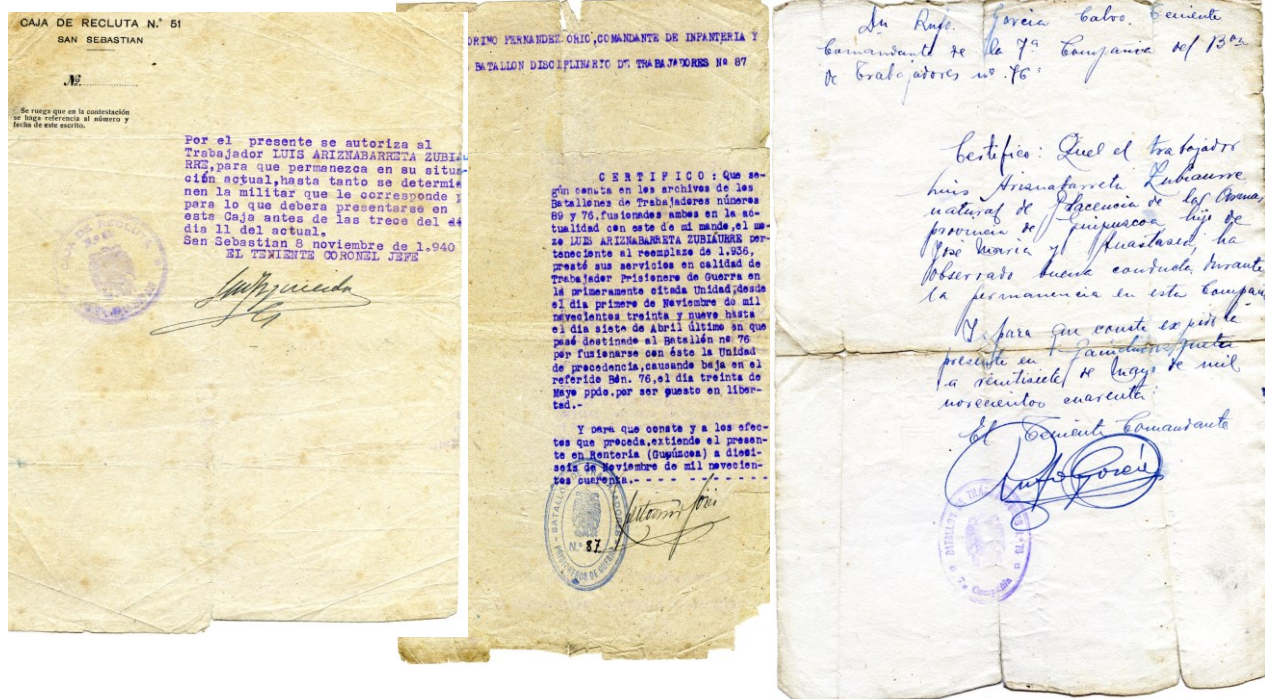 CAJA DE RECLUTA N.° 51
SAN SEBASTIAN
N.º
Se ruega que en la contestación
se haga referencia al número y
fecha de este escrito.
Por el presente se autoriza al
Trabajador LUIS ARIZNABARRETA ZUBIAU
RRE,para que permanezca en su situa-
ción actual,hasta tanto se determi
nen la militar que le corresponde y
para lo que debera presentarse en
esta Caja antes de las trece del di
dia 11 del actual.
San Sebastian 8 noviembre de 1.940
EL TENIENTE CORONEL JEFE
CAJA DE RECLUTA
ORINO FERNANDEZ ORIO,COMANDANTE DE INFANTERIA Y
BATALLON DISCIPLINARIO DE TRABAJADORES Nº 87
CERTIFICO: Que se-
gún consta en los archivos de los
Batallones de Trabajadores números
89 y 76,fusionados ambos en la ac-
tualidad con este de mi mando,el mo-
zo LUIS ARIZNABARRETA ZUBIAURRE per-
teneciente al reemplazo de 1.936,
prestó sus servicios en calidad de
Trabajador Prisionero de Guerra en
la primeramente citada Unidad,desde
el dia primero de Noviembre de mil
novecientos treinta y nueve hasta
el dia siete de Abril último en que
pasó destinado al Batallón nº 76
por fusionarse con éste la Unidad
de procedencia,causando baja en el
referido Bón. 76,el dia treinta de
Mayo ppdo.por ser puesto en liber-
tad.-
Y para que conste y a los efec-
tos que proceda,extiendo el presen-
te en Renteria (Gupúzcoa) a dieci-
seis de Noviembre de mil novecien-
tos cuarenta.- - - - - - - - - -
BATALLON DE TRABAJADORES
N.º 87
PRISIONEROS DE GUERRA
Dn Rufo Garcia Calvo, Teniente
Comandante de la 7ª Compania del Bon
de Trabajadores nº 76
Certifico: Que el trabajador
Luis Arisnabarreta Zubiaurre
natural de Placencia de las Armas
provincia de Guipuscoa hijo de
José Maria y Anastasia, ha
observado buena conducta durante
la permanencia en esta Compañ
Y para que conste expido le
presente en
a veintisiete de Mayo de mil
novecientos cuarenta.
El Teniente Comandante
Rufo García
BATALLON DE TRABAJADORES N.º 76
7ª Compañia